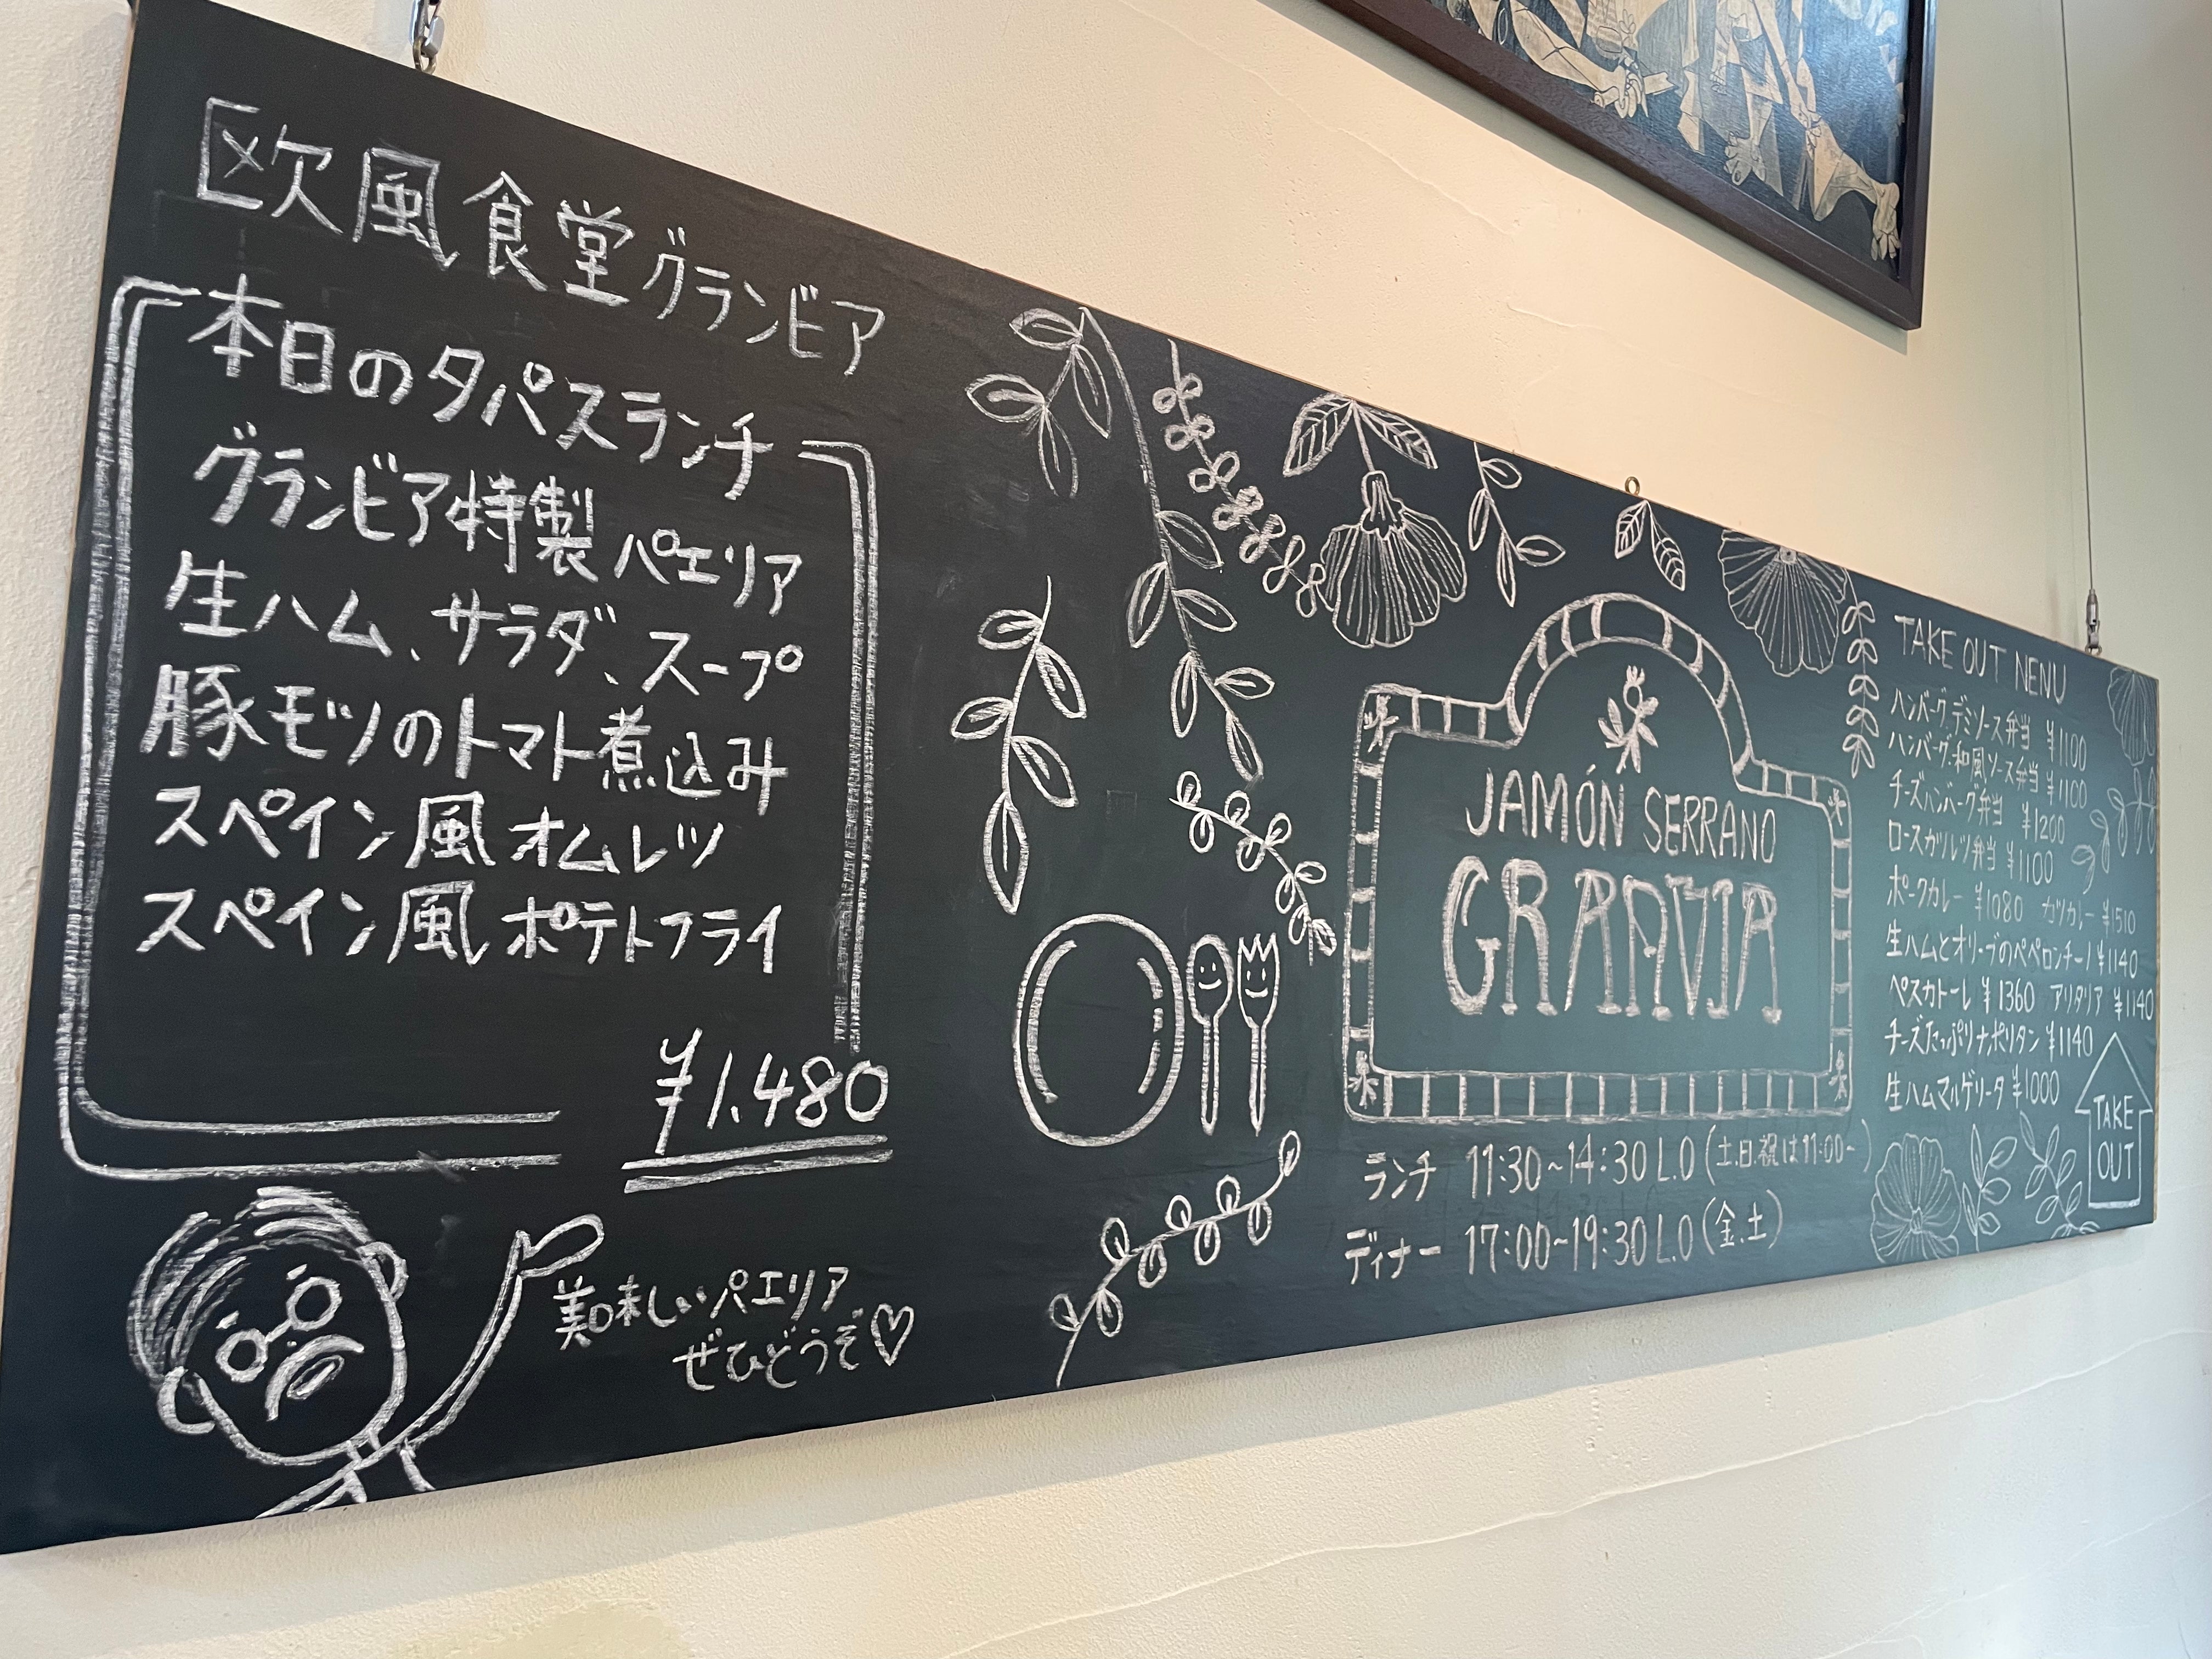 欧風食堂グランビア
本日のタパスランチ
グランビア特製パエリア
生ハム、サラダ、スープ
豚モツのトマト煮込み
スペイン風オムレツ
スペイン風ポテトフライ
¥1.480
美味しいパエリア
ぜひどうぞ♡
JAMÓN SERRANO
GRANVIA
ランチ 11:30~14:30 L.O (土.日.祝は11:00~)
ディナー 17:00~19:30 L.O (金.土)
TAKE OUT NENU
ハンバーグ.デミソース弁当 ¥1100
ハンバーグ.和風ソース弁当 ¥1100
チーズハンバーグ弁当 ¥1200
ロースカツ弁当 ¥1100
ポークカレー ¥1080 カツカレー ¥1510
生ハムとオリーブのペペロンチーノ ¥1140
ペスカトーレ ¥1360 アリタリア ¥1140
チーズたっぷりナポリタン ¥1140
生ハムマルゲリータ ¥1000
TAKE
OUT